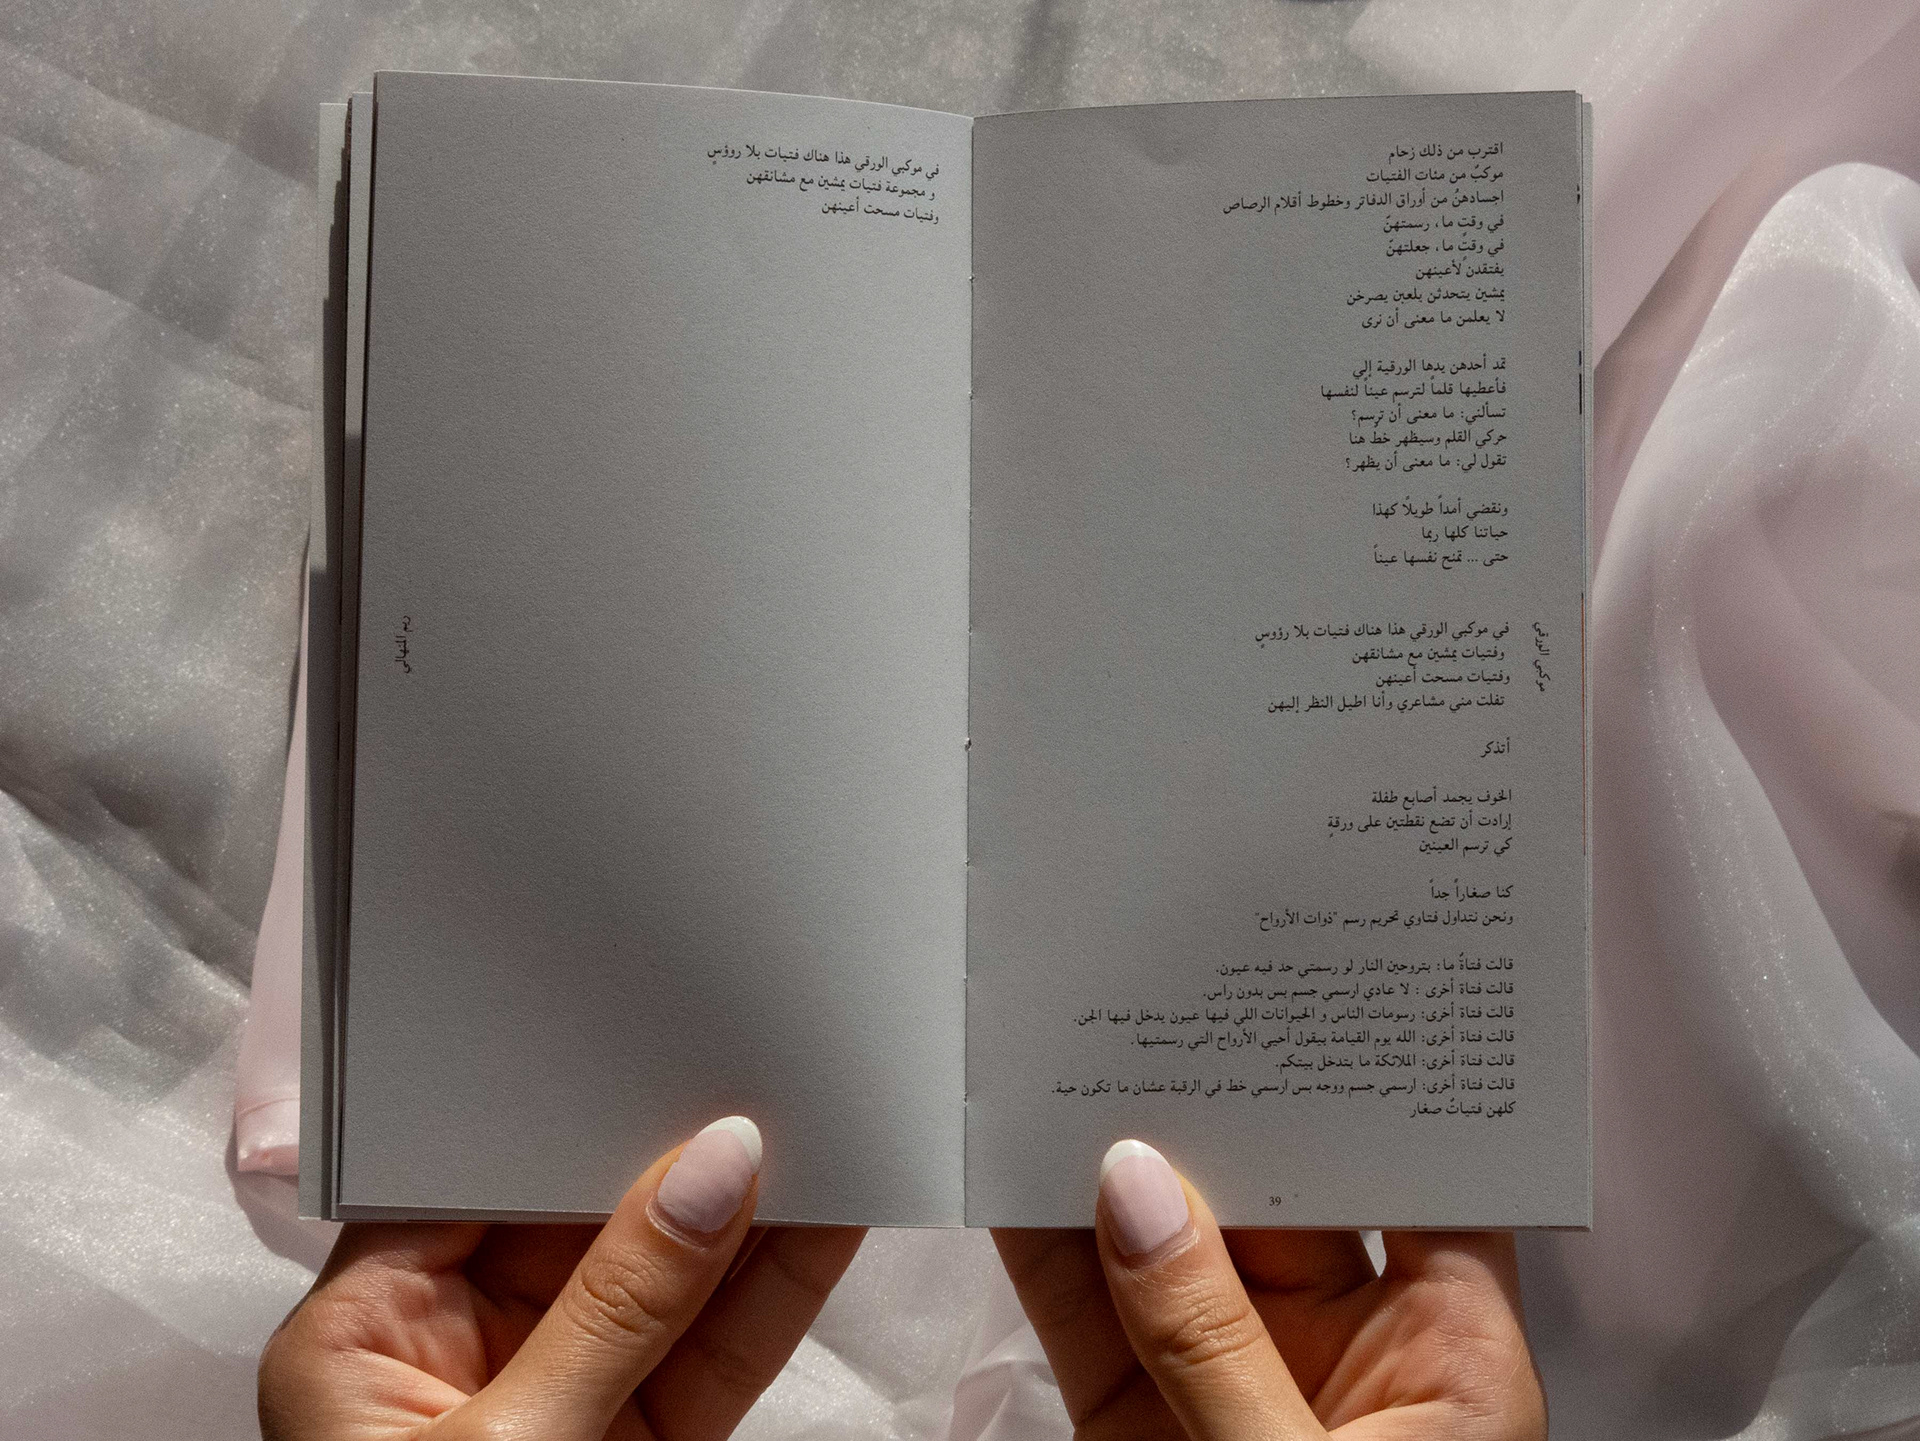 اقترب من ذلك زحام
موكبٌ من مئات الفتيات
اجسادهنُ من أوراق الدفاتر وخطوط أقلام الرصاص
في وقتٍ ما، رسمتهنّ
في وقتٍ ما، جعلتهنّ
يفتقدن لأعينهن
يمشين يتحدثن يلعبن يصرخن
لا يعلمن ما معنى أن نرى
تمد أحدهن يدها الورقية إلي
فأعطيها قلماً لترسم عيناً لنفسها
تسألني: ما معنى أن ترسم؟
حركي القلم وسيظهر خطٌ هنا
تقول لي: ما معنى أن يظهر؟
ونقضي أمداً طويلًا كهذا
حياتنا كلها ربما
حتى ... تمنح نفسها عيناً
في موكبي الورقي هذا هناك فتيات بلا رؤوسٍ
وفتيات يمشين مع مشانقهن
وفتيات مسحت أعينهن
تفلت مني مشاعري وأنا اطيل النظر إليهن
أتذكر
الخوف يجمد أصابع طفلة
إرادت أن تضع نقطتين على ورقةٍ
كي ترسم العينين
كنا صغاراً جداً
ونحن نتداول فتاوي تحريم رسم "ذوات الأرواح"
قالت فتاةٌ ما: بتروحين النار لو رسمتي حد فيه عيون.
قالت فتاة أخرى : لا عادي ارسمي جسم بس بدون راس.
قالت فتاة أخرى: رسومات الناس و الحيوانات اللي فيها عيون بدخل فيها الجن.
قالت فتاة أخرى: الله يوم القيامة بيقول أحيي الأرواح التي رسمتيها.
قالت فتاة أخرى: الملائكة ما بتدخل بيتكم.
قالت فتاة أخرى: ارسمي جسم ووجه بس ارسمي خط في الرقبة عشان ما تكون حية.
كلهن فتياتٌ صغار
موكبي الورقي
39
في موكبي الورقي هذا هناك فتيات بلا رووؤسٍ
و مجموعة فتيات يمشين مع مشانقهن
وفتيات مسحت أعينهن
ريم المنهالي